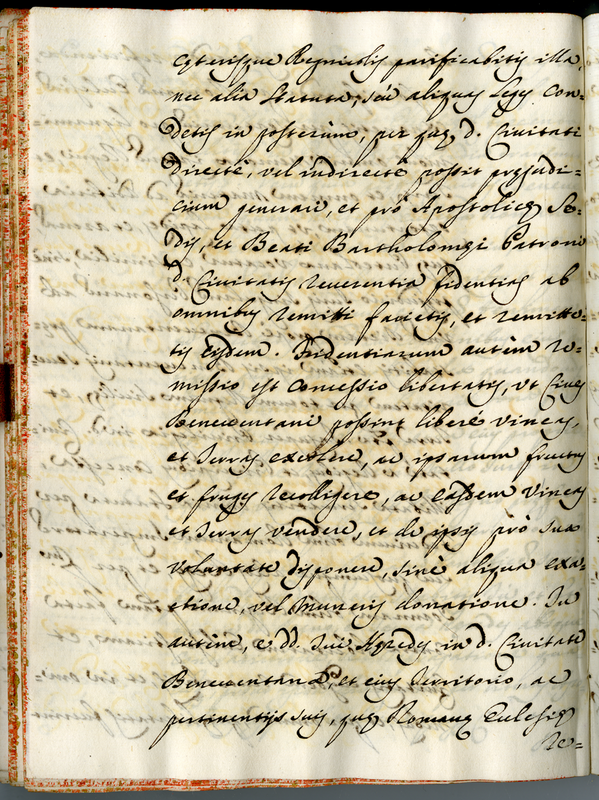 cęterisque Regnicolis parificabitis illa,
nec alia statuta, seù aliquas leges con=
detis in posterùm, per quę d. Civitati
directè, vel indirectè possit pręjudi=
cium generari, et prò Apostolicę Se=
dis, et Beati Bartholomęi Patroni
d. Civitatis reverentia fidentias ab
omnibus remitti facietis, et remitte=
tis eisdem. Fidentiarum autèm re=
missio est concessio libertatis, ut Cives
Beneventani possint liberè vineas,
et Terras excolere, ac ipsarum fructus
et fruges recolligere, ac easdem vineas
et Terras vendere, et de ipsis prò sua
voluntate disponere, sinè aliqua exa=
ctione, vel muneris donatione. Tu
autèm, e dd. tui Hęredes in d. Civitate
Beneventana, et eius Territorio, ac
pertinentijs suis, quę Romanę Eclesię
Re=